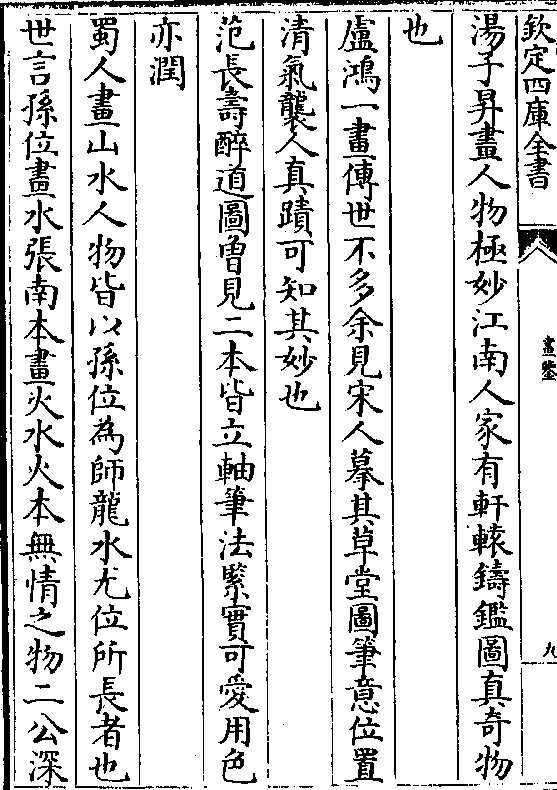 欽定四庫全書
畫鑒
九
湯子昇畫人物極妙江南人家有軒轅鑄鑑圖真奇物
也
盧鴻一畫傳世不多余見宋人摹其草堂圖筆意位置
清氣襲人真蹟可知其妙也
范長壽醉道圖曾見二本皆立軸筆法緊實可愛用色
亦潤
蜀人畫山水人物皆以孫位為師龍水尤位所長者也
世言孫位畫水張南本畫火水火本無情之物二公深